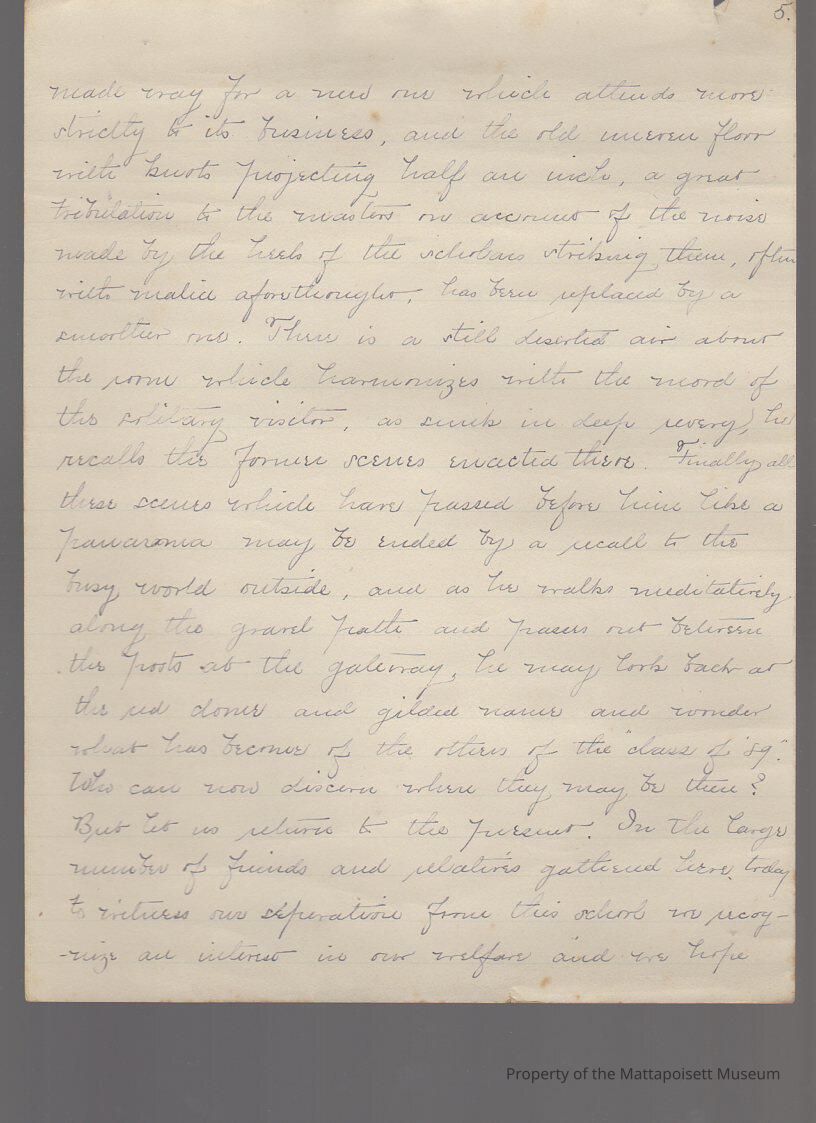 5.
made way for a new one which attends more
strictly to its business, and the old uneven floor
with knots projecting half an inch, a great
tribulation to the masters on account of the noise
made by the heels of the scholars striking them, often
with malice aforethought, has been replaced by a
smoother one. There is a still deserted air about
the room which harmonizes with the mood of
the solitary visitor, as sunk in deep revery, he
recalls the former scenes enacted there. Finally all
these scenes which have passed before him like a
panarama may be ended by a recall to the
busy world outside, and as he walks meditatively
along the gravel path and passes out between
the posts at the gateway, he may look back at
the red dome and gilded name and wonder
what has become of the others of the "class of '89".
Who can now discern where they may be then?
But let us return to the present. In the large
number of friends and relatives gathered here today
to witness our seperation from this school we recog-
-nize an interest in our welfare and we hope
Property of the Mattapoisett Museum